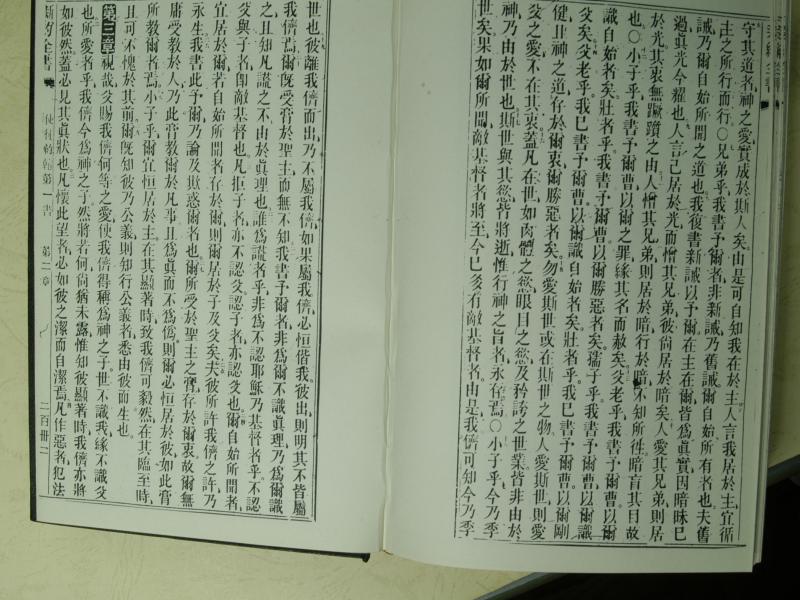 守其道者神之愛實成於斯人矣由是可自知我在於主人言我居於主宜循
主之所行而行○兄弟乎我書予爾者非新誡乃舊誡爾自始所有者也夫舊
誡乃爾自始所聞之道也我復書新誡以予爾在主在爾皆為眞實因暗昧已
過眞光今耀也人言己居於光而憎其兄弟彼尙居於暗矣人愛其兄弟則居
於光其衷無躓躓之由人憎其兄弟則居於暗行於暗不知所徃暗盲其目故
也○小子乎我書予爾曹以爾之罪緣其名而赦矣父老乎我書予爾曹以爾
識自始者矣壯者乎我書予爾曹以爾勝惡者矣孺子乎我書予爾曹以爾識
父矣父老乎我已書予爾曹以爾識自始者矣壯者乎我已書予爾曹以爾剛
健且神之道存於爾衷爾勝惡者矣勿愛斯世或在斯世之物人愛斯世則愛
父之愛不在其衷蓋凡在世如肉體之慾眼目之慾及矜誇之世業皆非由於
神乃由於世也斯世與其慾皆將逝惟行神之旨者永存焉○小子乎今乃季
世矣果如爾所聞敵基督者將至今已多有敵基督者由是我儕可知今乃季
世也彼離我儕而出乃不屬我儕如果屬我儕必恒偕我彼出則明其不皆屬
我儕焉爾旣受膏於聖主而無不知我書予爾者非爲爾不識眞理乃爲爾識
之且知凡謊之不由於眞理也誰爲謊者乎非爲不認耶穌乃基督者乎不認
父與子者卽敵基督也凡拒子者亦不認父認子者亦認父也爾自始所聞者
宜居於爾若自始所聞者存於爾則爾居於子及父矣夫彼所許我儕之許乃
永生我書此予爾乃論及欺惑爾者也爾所受於聖主之膏存於爾衷故爾無
庸受教於人乃此膏教爾於凡事且爲眞而不爲僞則爾必恒居於彼如此膏
所教爾者焉小子乎爾宜恒居於主在其顯著時致我儕可毅然在其臨至時
且可不愧於其前爾旣知彼乃公義則知行公義者悉由彼而生也
第三章視哉父賜我儕何等之愛使我儕得稱爲神之子世不識我緣不識父
也所愛者乎我儕今爲神之子然將若何尙猶未露惟知彼顯著時我儕亦將
如彼然蓋必見其眞狀也凡懷此望者必如彼之潔而自潔焉凡作惡者犯法
新約全書　使徒約翰第一書　第二章　二百卅二